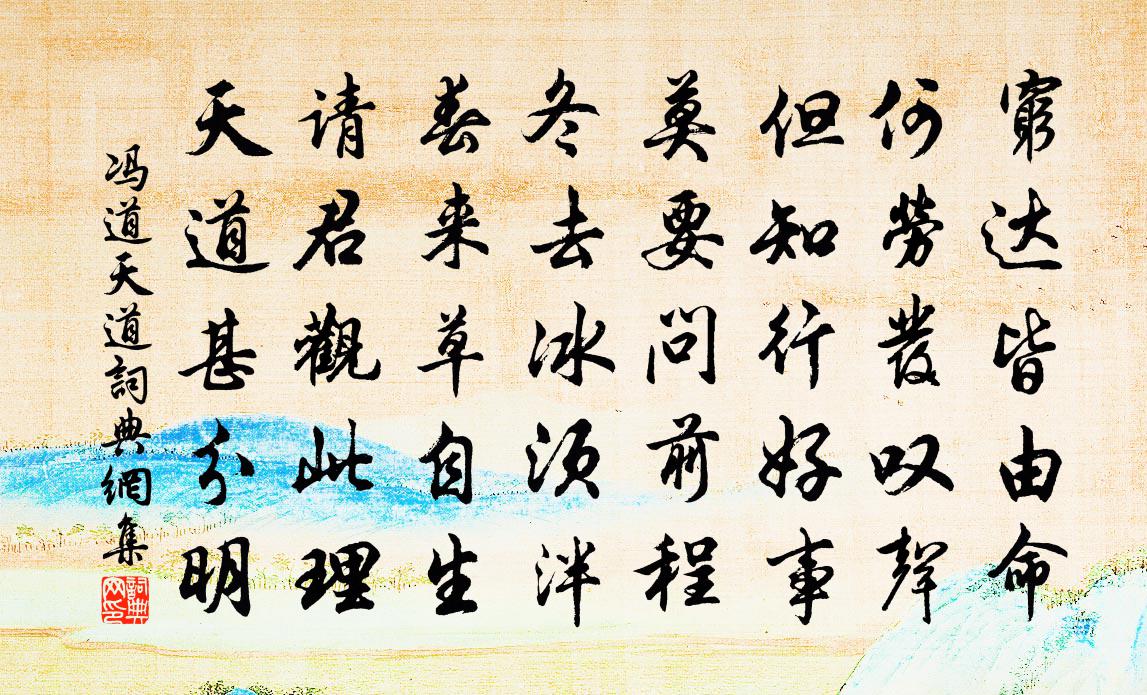 窮达皆由命
何勞發叹聲
但知行好事
莫要问前程
冬去冰须泮
春来草自生
请君觀此理
天道甚分明
冯道天道詞典網集
詞典网印